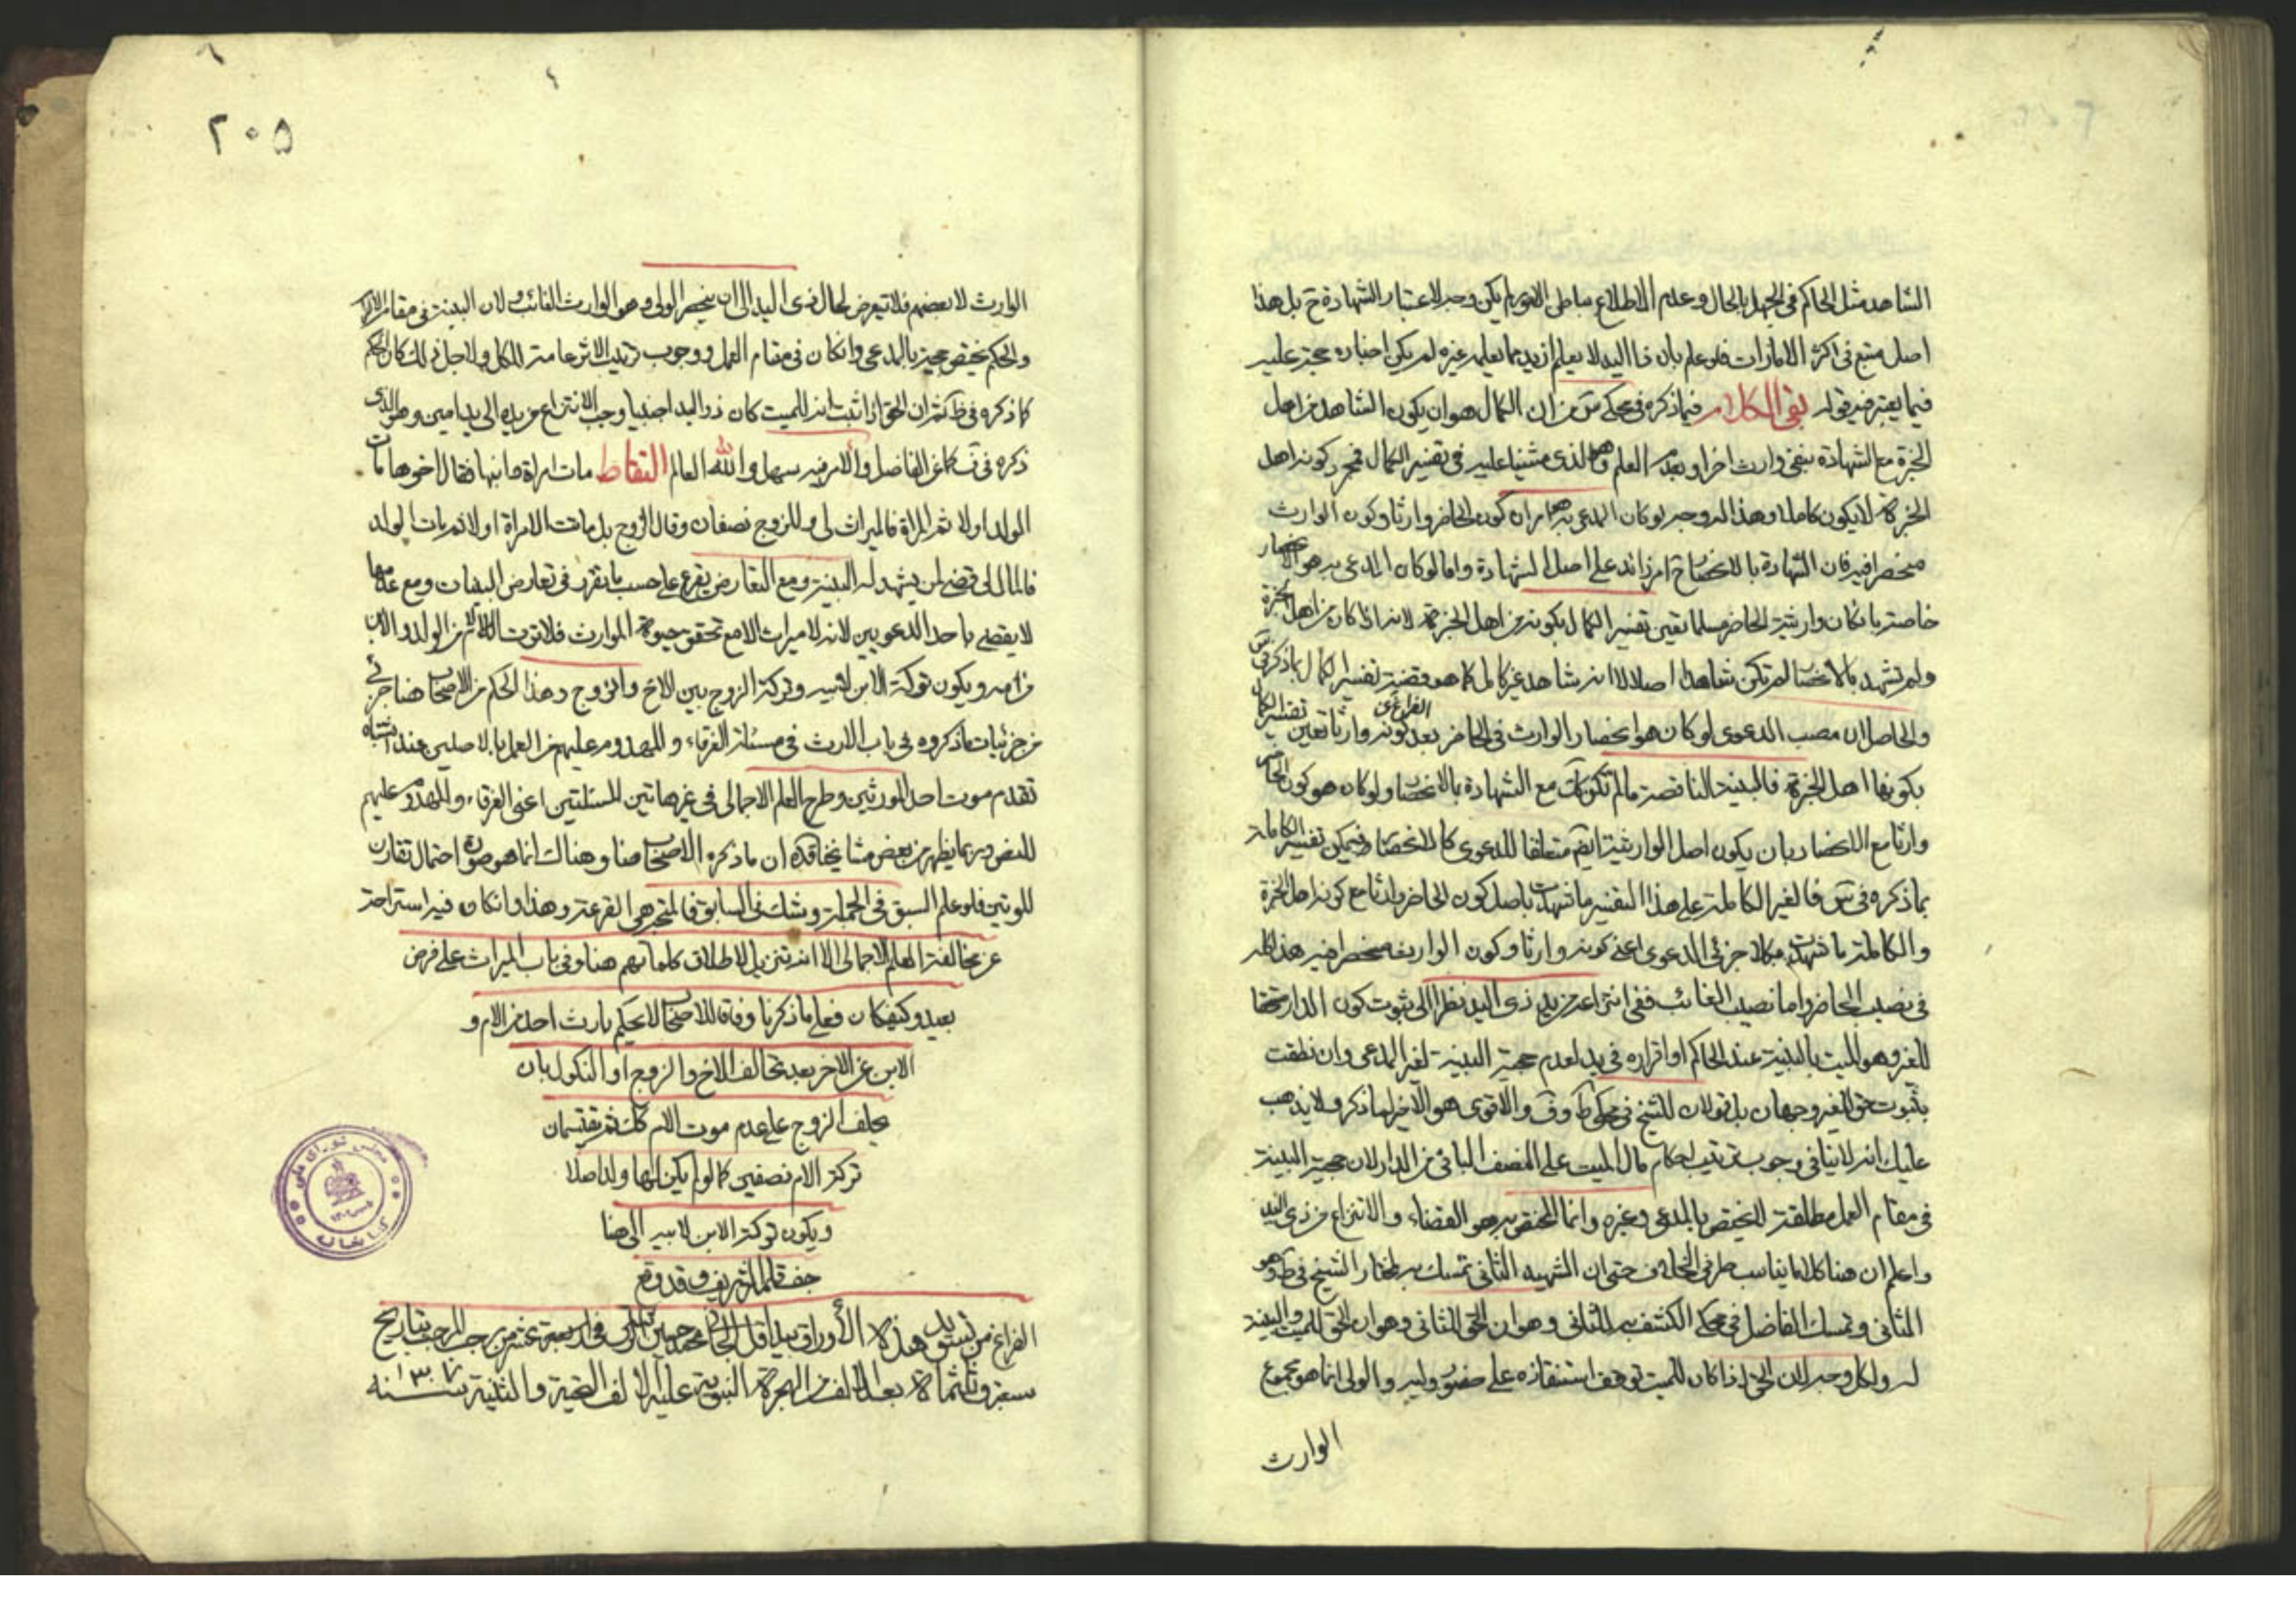 الشاهد مثل الحاكم في الجهل بالحال وعدم الاطلاع بباطن الامر لم يكن وجه لاعتبار الشهادة ح بل هذا
اصل متبع في اكثر الامارات فلو علم بان ذا اليد لا يعلم ازيد مما يعلمه غيره لم يكن اخباره حجة عليه
فيما يعتبر فيه قوله بقى الكلام فيما ذكره في محكي من ان الكمال هو ان يكون الشاهد من اهل
الخبرة مع الشهادة بنفي وارث اخر او بعدم العلم وهو الذي مشينا عليه في تفسير الكمال فمجرد كونه اهل
الخبرة لا يكون كاملا وهذا له وجه لو كان المدعى به امران كون الحاضر وارثا وكون الوارث
منحصرا فيه فان الشهادة بالانحصار ح امر زائد على اصل الشهادة واما لو كان المدعى به هو الانحصار
خاصة بان كان وارثية الحاضر مسلما تعين تفسير الكمال بكونه من اهل الخبرة لانه اذا كان من اهل الخبرة
ولم تشهد بالانحصار لم تكن شاهدا اصلا لا انه شاهد غير كامل كما هو قضية تفسير الكمال بما ذكر في
والحاصل ان مصب الدعوى لو كان هو انحصار الوارث في الحاضر بعد الفراغ عن كونه وارثا تعين تفسير الكمال
بكونها اهل الخبرة فالبينة الناقصة ما لم تكن كك مع الشهادة بالانحصار ولو كان هو كون الحاضر
وارثا مع الانحصار بان يكون اصل الوارثية ايضا متعلقا للدعوى كالانحصار فيمكن تفسير الكاملة
بما ذكره في فالغير الكاملة على هذا التفسير ما شهدت باصل كون الحاضر وارثا مع كونه اهل الخبرة
والكاملة ما شهدت بكلا جزئي الدعوى اعني كونه وارثا وكون الوارث منحصرا فيه هذا كله
في نصيب الحاضر واما نصيب الغائب ففي انتزاعه من يد ذي اليد نظرا الى ثبوت كون الدار مستحقا
للغير وهو الميت بالبينة عند الحاكم او اقراره في يده لعدم حجية البينة لغير المدعى وان نطقت
بثبوت حق الغير وجهان بل قولان للشيخ في محكي ط وف والاقوى هو الاخير لما ذكر ولا يذهب
عليك انه لا ينافي وجوب ترتيب احكام مال الميت على النصف الباقي من الدار لان حجية البينة
في مقام العمل مطلقة لا يختص بالمدعى وغيره وانما المختص به هو القضاء والانتزاع من ذي اليد
واعلم ان هنا كلاما يناسب طرفي الخلاف حتى ان الشهيد الثاني تمسك به لمختار الشيخ في ط وهو
الثاني وتمسك الفاضل في محكي الكشف به للثاني وهو ان الحق للثاني وهو ان الحق للميت والبينة
له ولكل وجه لان الحق اذا كان للميت توقف استنقاذه على حضور وليه والولي انما هو مجموع
الوارث
٢٠٥
الوارث لا بعضهم فلا تيعرض لحال ذي اليد الى ان ينحصر الولي وهو الوارث الغائب ولان البينة في مقام الالزام
والحكم يختص حجية بالمدعى وان كان في مقام العمل ووجوب ترتيب الاثر عامة للكل ولاجل ذلك كان الحكم
كما ذكره في ط ان الحق اذا ثبت انه للميت كان ذو اليد اجنبيا وجب الانتزاع من يده الى يد امين وهو الذي
ذكره في كاعن الفاضل والامر فيه سهل والله العالم التقاط مات امراة وابنها فقال اخوها مات
الولد اولا ثم المراة فالميراث لي وللزوج نصفان وقال الزوج بل ماتت الامراة اولا ثم مات الولد
فالمال لي قضى لمن يشهد له البينة ومع التعارض يقرع على حسب ما يقرر في تعارض البينات ومع عدمها
لا يقضى باحد الدعويين لانه لا ميراث الا مع تحقق حيوة الوارث فلا ترث الام من الولد ولا الابن
من امه ويكون تركة الابن لابيه وتركة الزوج بين الاخ والزوج وهذا الحكم من الاصحاب هنا جزئي
من جزئيات ما ذكروه في باب الارث في مسئلة الغرقاء والمهدوم عليهم من العمل بالاصلين عند اشتباه
تقدم موت احد المورثين وطرح العلم الاجمالي في غير هاتين المسئلتين اعني الغرقاء والمهدوم عليهم
للنص وربما يظهر من بعض مشايخنا قده ان ما ذكره الاصحاب هنا وهناك انما هو صورة احتمال تقارن
الموتين فلو علم السبق في الجملة وشك في السابق فالمتجه هو القرعة وهذا وان كان فيه استراحة
عن مخالفة العلم الاجمالي الا انه تنزيل لاطلاق كلماتهم هنا وفي باب الميراث على فرض
بعيد وكيف كان فعلى ما ذكرنا وفاقا للاصحاب لا يحكم بارث احد من الام و
الابن عن الاخر بعد تحالف الاخ والزوج او النكول بان
يحلف الزوج على عدم موت الام كك ثم يقتسمان
تركة الام نصفين كما لو لم يكن لها ولد اصلا
ويكون تركة الابن لابيه الى هنا
جف قلمه الشريف وقد وقع
الفراغ من تسويد هذه الأوراق بيد اقل محمد حسين في اربعة عشر من رجب المرجب بتاريخ
سبعة وثلثمائة بعد الالف من الهجرة النبوية عليه الاف التحية والثنية سنه ١٣٠٧
مجلس شورای ملی
کتابخانه